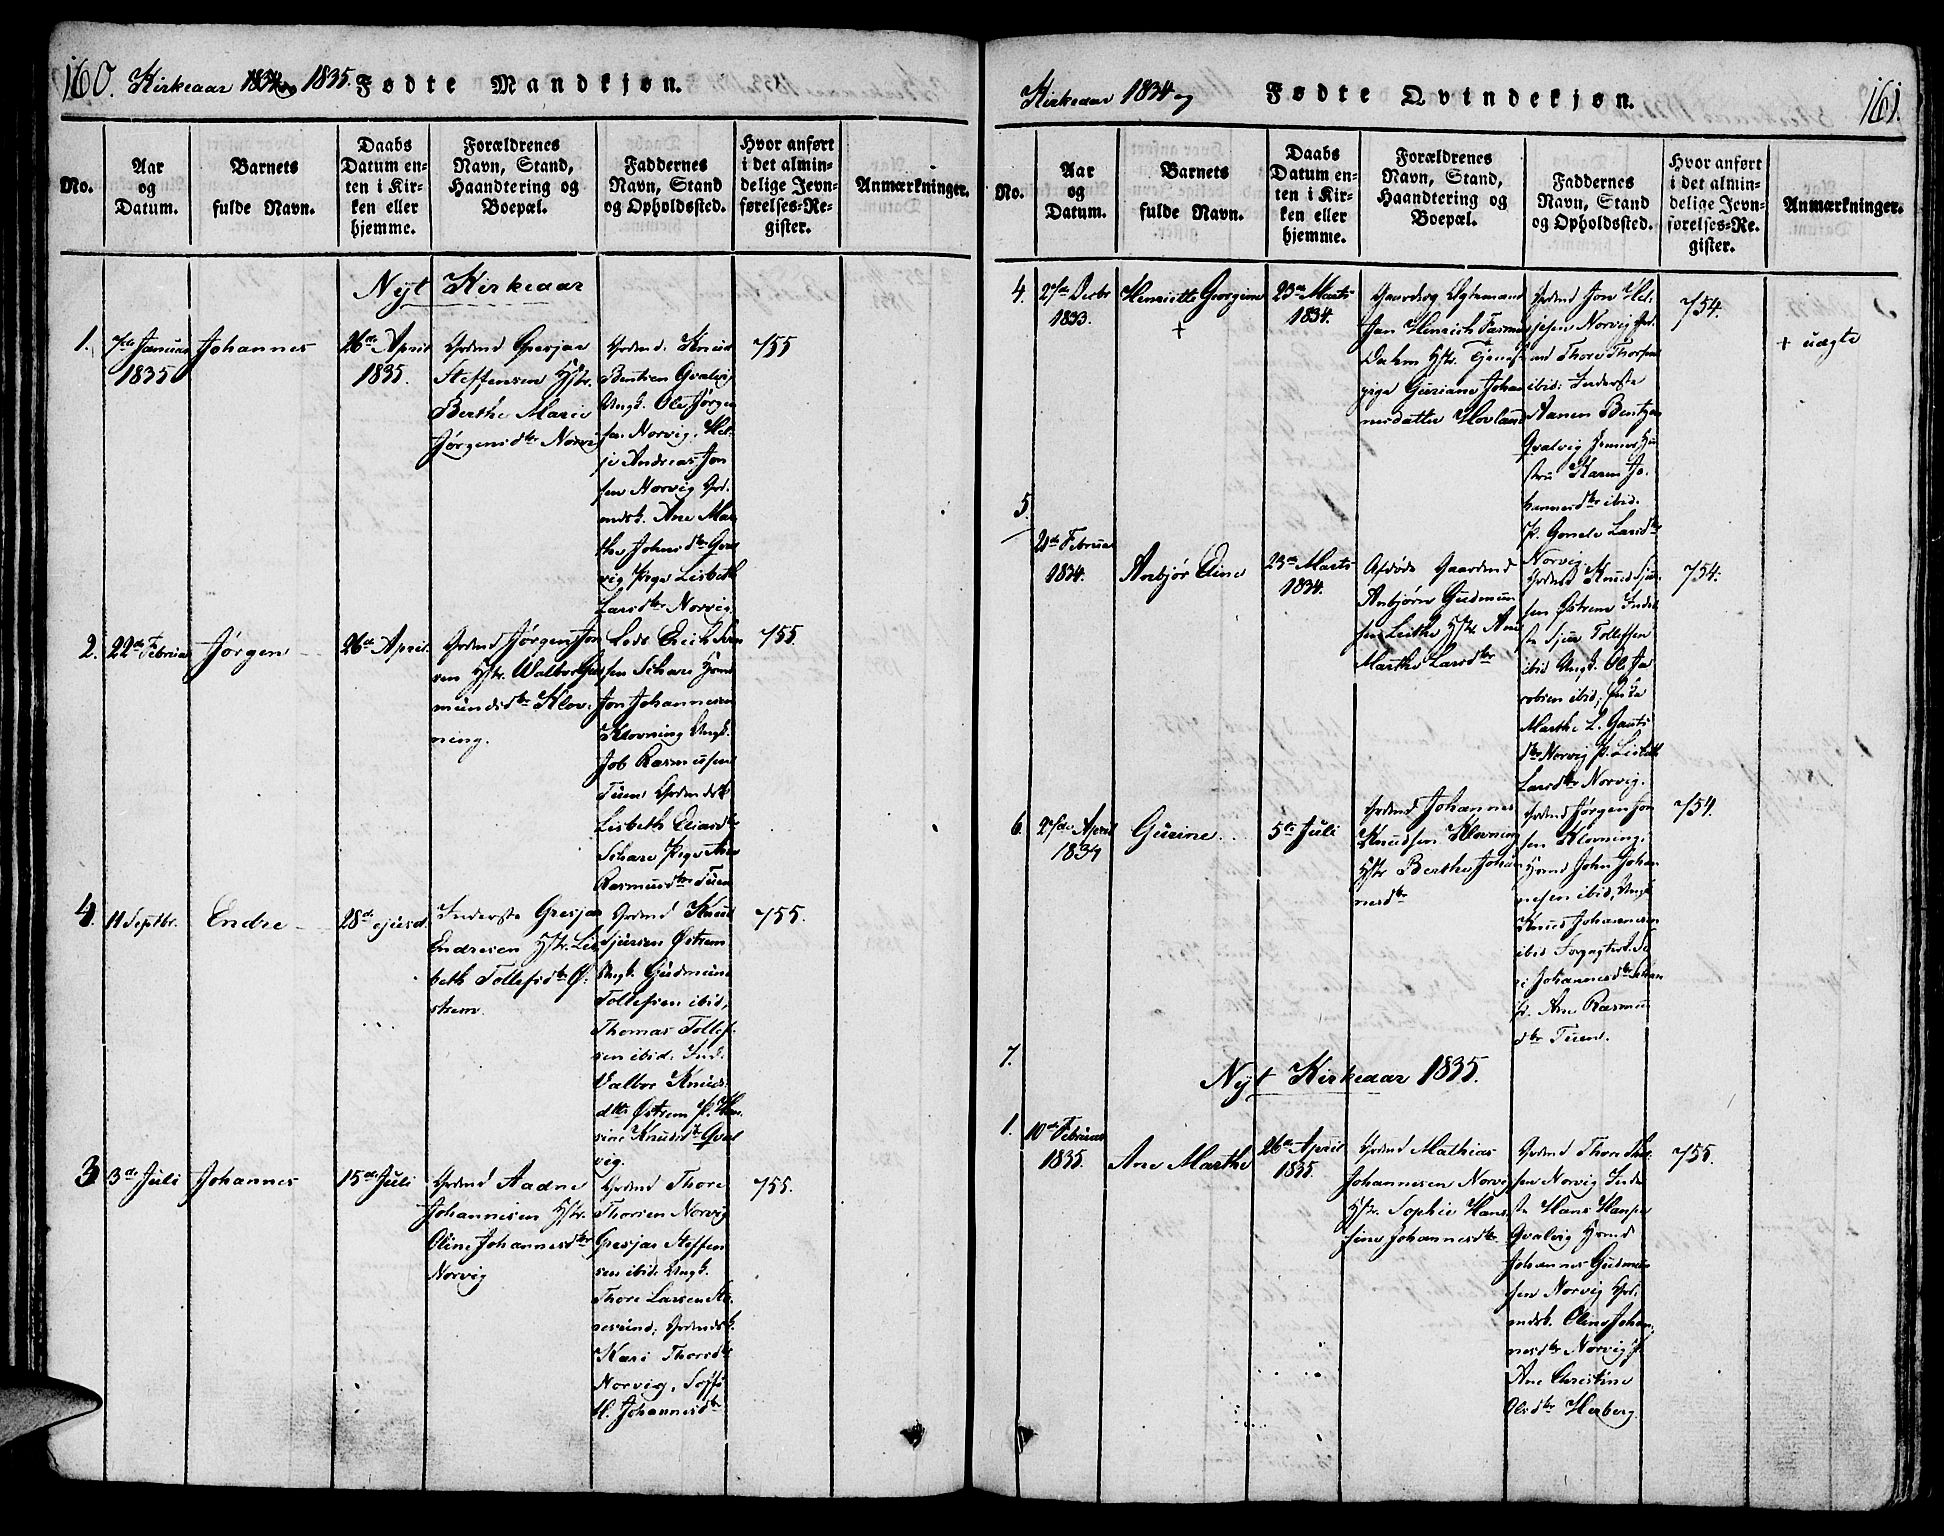 160. Kirkeaar 1834 og 1835. Fødte Mandkjøn.
No.
Aar og Datum.
Barnets fulde Navn.
Daabs Datum enten i Kirken eller hjemme.
Forældrenes Navn, Stand, Haandtering og Boepæl.
Faddernes Navn, Stand og Opholdssted.
Hvor anført i det almindelige Jevnførelses-Register.
Anmærkninger.
Nyt Kirkeaar
1.
7de Januar
1835
Johannes
26de April
1835.
Grdmd Gresjar
Steffensen Hstr.
Berthe Marie
Jørgensdtr Norvig
Grdmd. Knud
Bentsen Qvalvig
Ungk. Ole Jørgen
sen Norvig, Hel-
je Andreas Jon
sen Norvig Grd-
mdsk. Ane Mar
the Johnsdtr Qval
vig Pige Lisbeth
Larsdtr Norvig.
755
2.
22de Februar
Jørgen
26de April.
Grdmd Jørgen Jon
sen Hstr. Walbor Gud
mundsdtr Klov-
ning.
Lods Erich Iven
sen Schare Hsmd
Jon Johannesen
Klovning Ungk.
Job Rasmusen
Tuen Grdmdsk
Lisbeth Eliasdtr
Schare Pige Ane
Rasmusdtr Tuen
755.
4.
11 Septbr.
Endre
28de ejusd.
Inderste Gresjar
Endresen Hstr. Lis
beth Tollefsdtr Ø-
strem
Grdmd Knud
Sjursen Østrem
Ungk. Gudmund
Tollefsen ibid,
Thomas Tollef-
sen ibid. Ind.
Valbor Knuds-
dtr Østrem P.
sine Knudsdtr Qval
vig.
755.
3.
3de Juli
Johannes
15de Juli
Grdmd Aadne
Johannesen Hstr.
Oline Johannesdtr
Norvig
Grdmd Thore
Thorsen Norvig
Gresjar Steffen
sen ibid. Ungk.
Thore Larsen
Grdmdsk.
Kari Thorsdtr
Norvig,
H. Johannesdtr
755.
Kirkeaar 1834 og Fødte Qvindekjøn. 161.
No.
Aar og Datum.
Barnets fulde Navn.
Daabs Datum enten i Kirken eller hjemme.
Forældrenes Navn, Stand, Haandtering og Boepæl.
Faddernes Navn, Stand og Opholdssted.
Hvor anført i det almindelige Jevnførelses-Register.
Anmærkninger.
4.
27de Decbr
1833.
Henriette Georgine
+
23de Marts
1834.
Gaardbrg Ægtemand
Jan Henrich Rasmus
Dahm Hstr. Tjeneste
pige Guriane Johan
nesdatter Hovland
Grdmd Jon Hel-
jesen Norvig Grd-
md Thore Thorsen
ibid: Inderste
Aanen Bentsen
Qvalvig Hu
stru Karen Jo-
hannesdtr ibid.
P. Gonele Larsdtr
Norvig.
754.
+ uægte
5.
21de Februar
1834.
Anbjør Eline
23de Marts
1834.
Afdøde Gaardmd
Anbjørn Gudmun
sen Leithe Hstr. Ane
Marthe Larsdtr
Grdmd Knud Sjur-
sen Østrem Inder
ste Sjur Tollefsen
ibid Ungk. Ol Ja
cobsen ibid, Enke
Marthe L. Gauts
dtr Norvig P. Lisbeth
Larsdtr Norvig.
754.
6.
27de April
1834
Gurine
5te Juli
Grdmd Johannes
Knudsen Klovning
Hstr Berthe Johan
nesdtr
Grdmd Jørgen Jon
sen Klovning,
Hsmd John Johan
nesen ibid, Ungk
Knud Johannesen
ibid
Johannesdtr
P. Ane Rasmus
dtr Tuen.
754.
7.
Nyt Kirkeaar 1835.
1.
10de Februar
1835.
Ane Marthe
26de April
1835.
Grdmd Mathias
Johannesen Norvig
Hstr. Sophie Han
sine Johannesdtr.
Grdmd Thore Thor
sen Norvig Inder
ste Hans Hansen
Qvalvig Hsmd
Johannes Gudmun
sen Norvig Grd-
mdsk. Oline Johan-
nesdtr Norvig P.
Ane Christine
Olsdtr Herberg.
755.